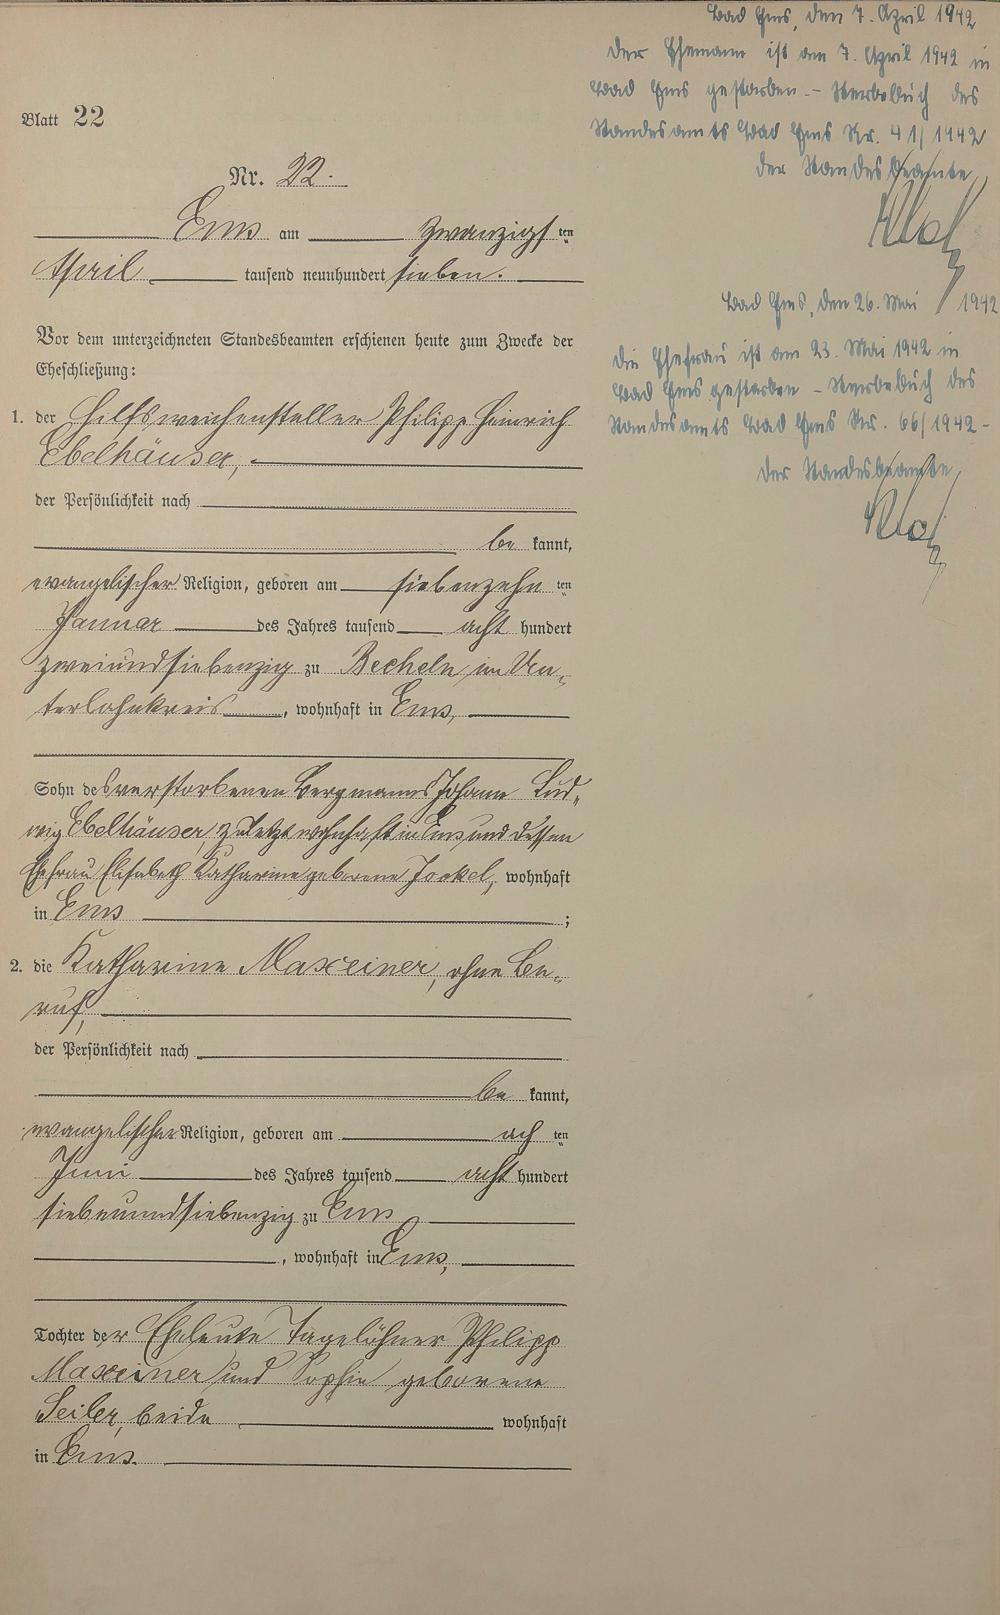 Blatt 22
Nr. 22.
Ems am zwanzigsten
April tausend neunhundert sieben.
Vor dem unterzeichneten Standesbeamten erschienen heute zum Zwecke der
Eheschließung:
1. der Hilfsweichensteller Philipp Heinrich
Ebelhäuser,
der Persönlichkeit nach
be kannt,
evangelischer Religion, geboren am siebenzehn ten
Januar des Jahres tausend acht hundert
zweiundsiebenzig zu Becheln im Un-
terlahnkreis, wohnhaft in Ems,
Sohn des verstorbenen Bergmanns Johann Lud-
wig Ebelhäuser, zuletzt wohnhaft in Ems und dessen
Ehefrau Elisabeth Katharine geborene Jockel, wohnhaft
in Ems ;
2. die Katharine Maxeiner, ohne Be-
ruf,
der Persönlichkeit nach
be kannt,
evangelischer Religion, geboren am ach ten
Juni des Jahres tausend acht hundert
siebenundsiebenzig zu Ems
, wohnhaft in Ems,
Tochter der Eheleute Tagelöhner Philipp
Maxeiner und Sophie geborene
Seiler, beide wohnhaft
in Ems.
Bad Ems, den 7. April 1942
Der Ehemann ist am 7. April 1942 in
Bad Ems gestorben. - Sterbebuch des
Standesamts Bad Ems Nr. 41/1942
Der Standesbeamte,
Bad Ems, den 26. Mai 1942
Die Ehefrau ist am 23. Mai 1942 in
Bad Ems gestorben - Sterbebuch des
Standesamts Bad Ems Nr. 66/1942 -
Der Standesbeamte,